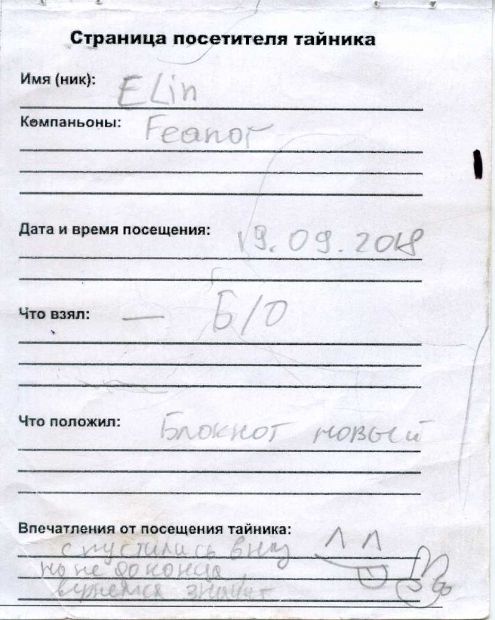 Страница посетителя тайника
Имя (ник): ELin
Компаньоны: Feanor
Дата и время посещения: 19.09.2018
Что взял: — Б/О
Что положил: Блокнот новый
Впечатления от посещения тайника:
спустились вниз
но не до конца
вернемся значит